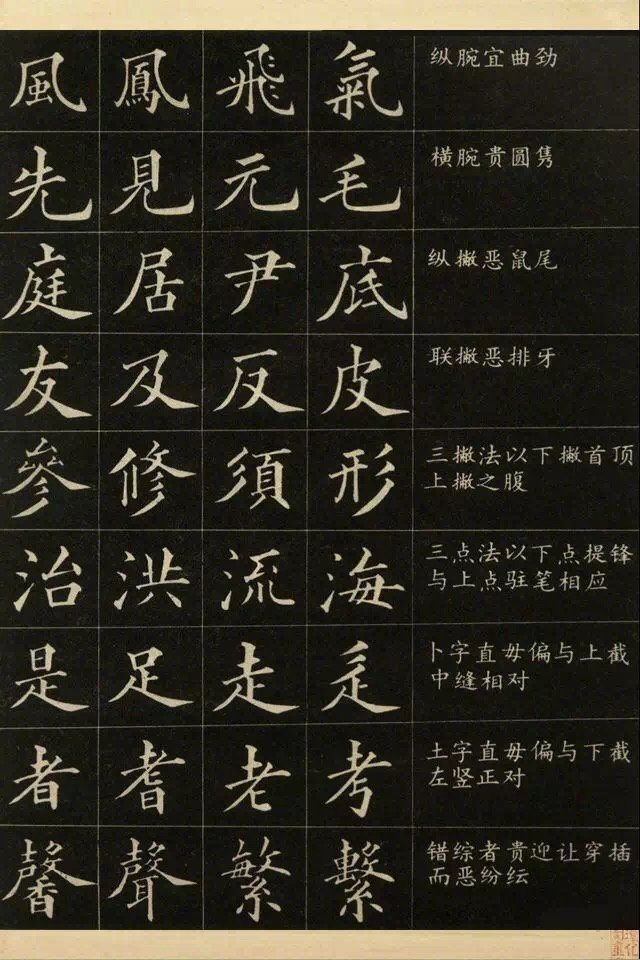 風 鳳 飛 氣 纵腕宜曲劲
先 見 元 毛 横腕贵圆隽
庭 居 尹 底 纵撇恶鼠尾
友 及 反 皮 联撇恶排牙
參 修 須 形 三撇法以下撇首顶
上撇之腹
治 洪 流 海 三点法以下点提锋
与上点驻笔相应
是 足 走 辵 卜字直毋偏与上截
中缝相对
者 耆 老 考 土字直毋偏与下截
左竖正对
馨 聲 繁 繫 错综者贵迎让穿插
而恶纷纭